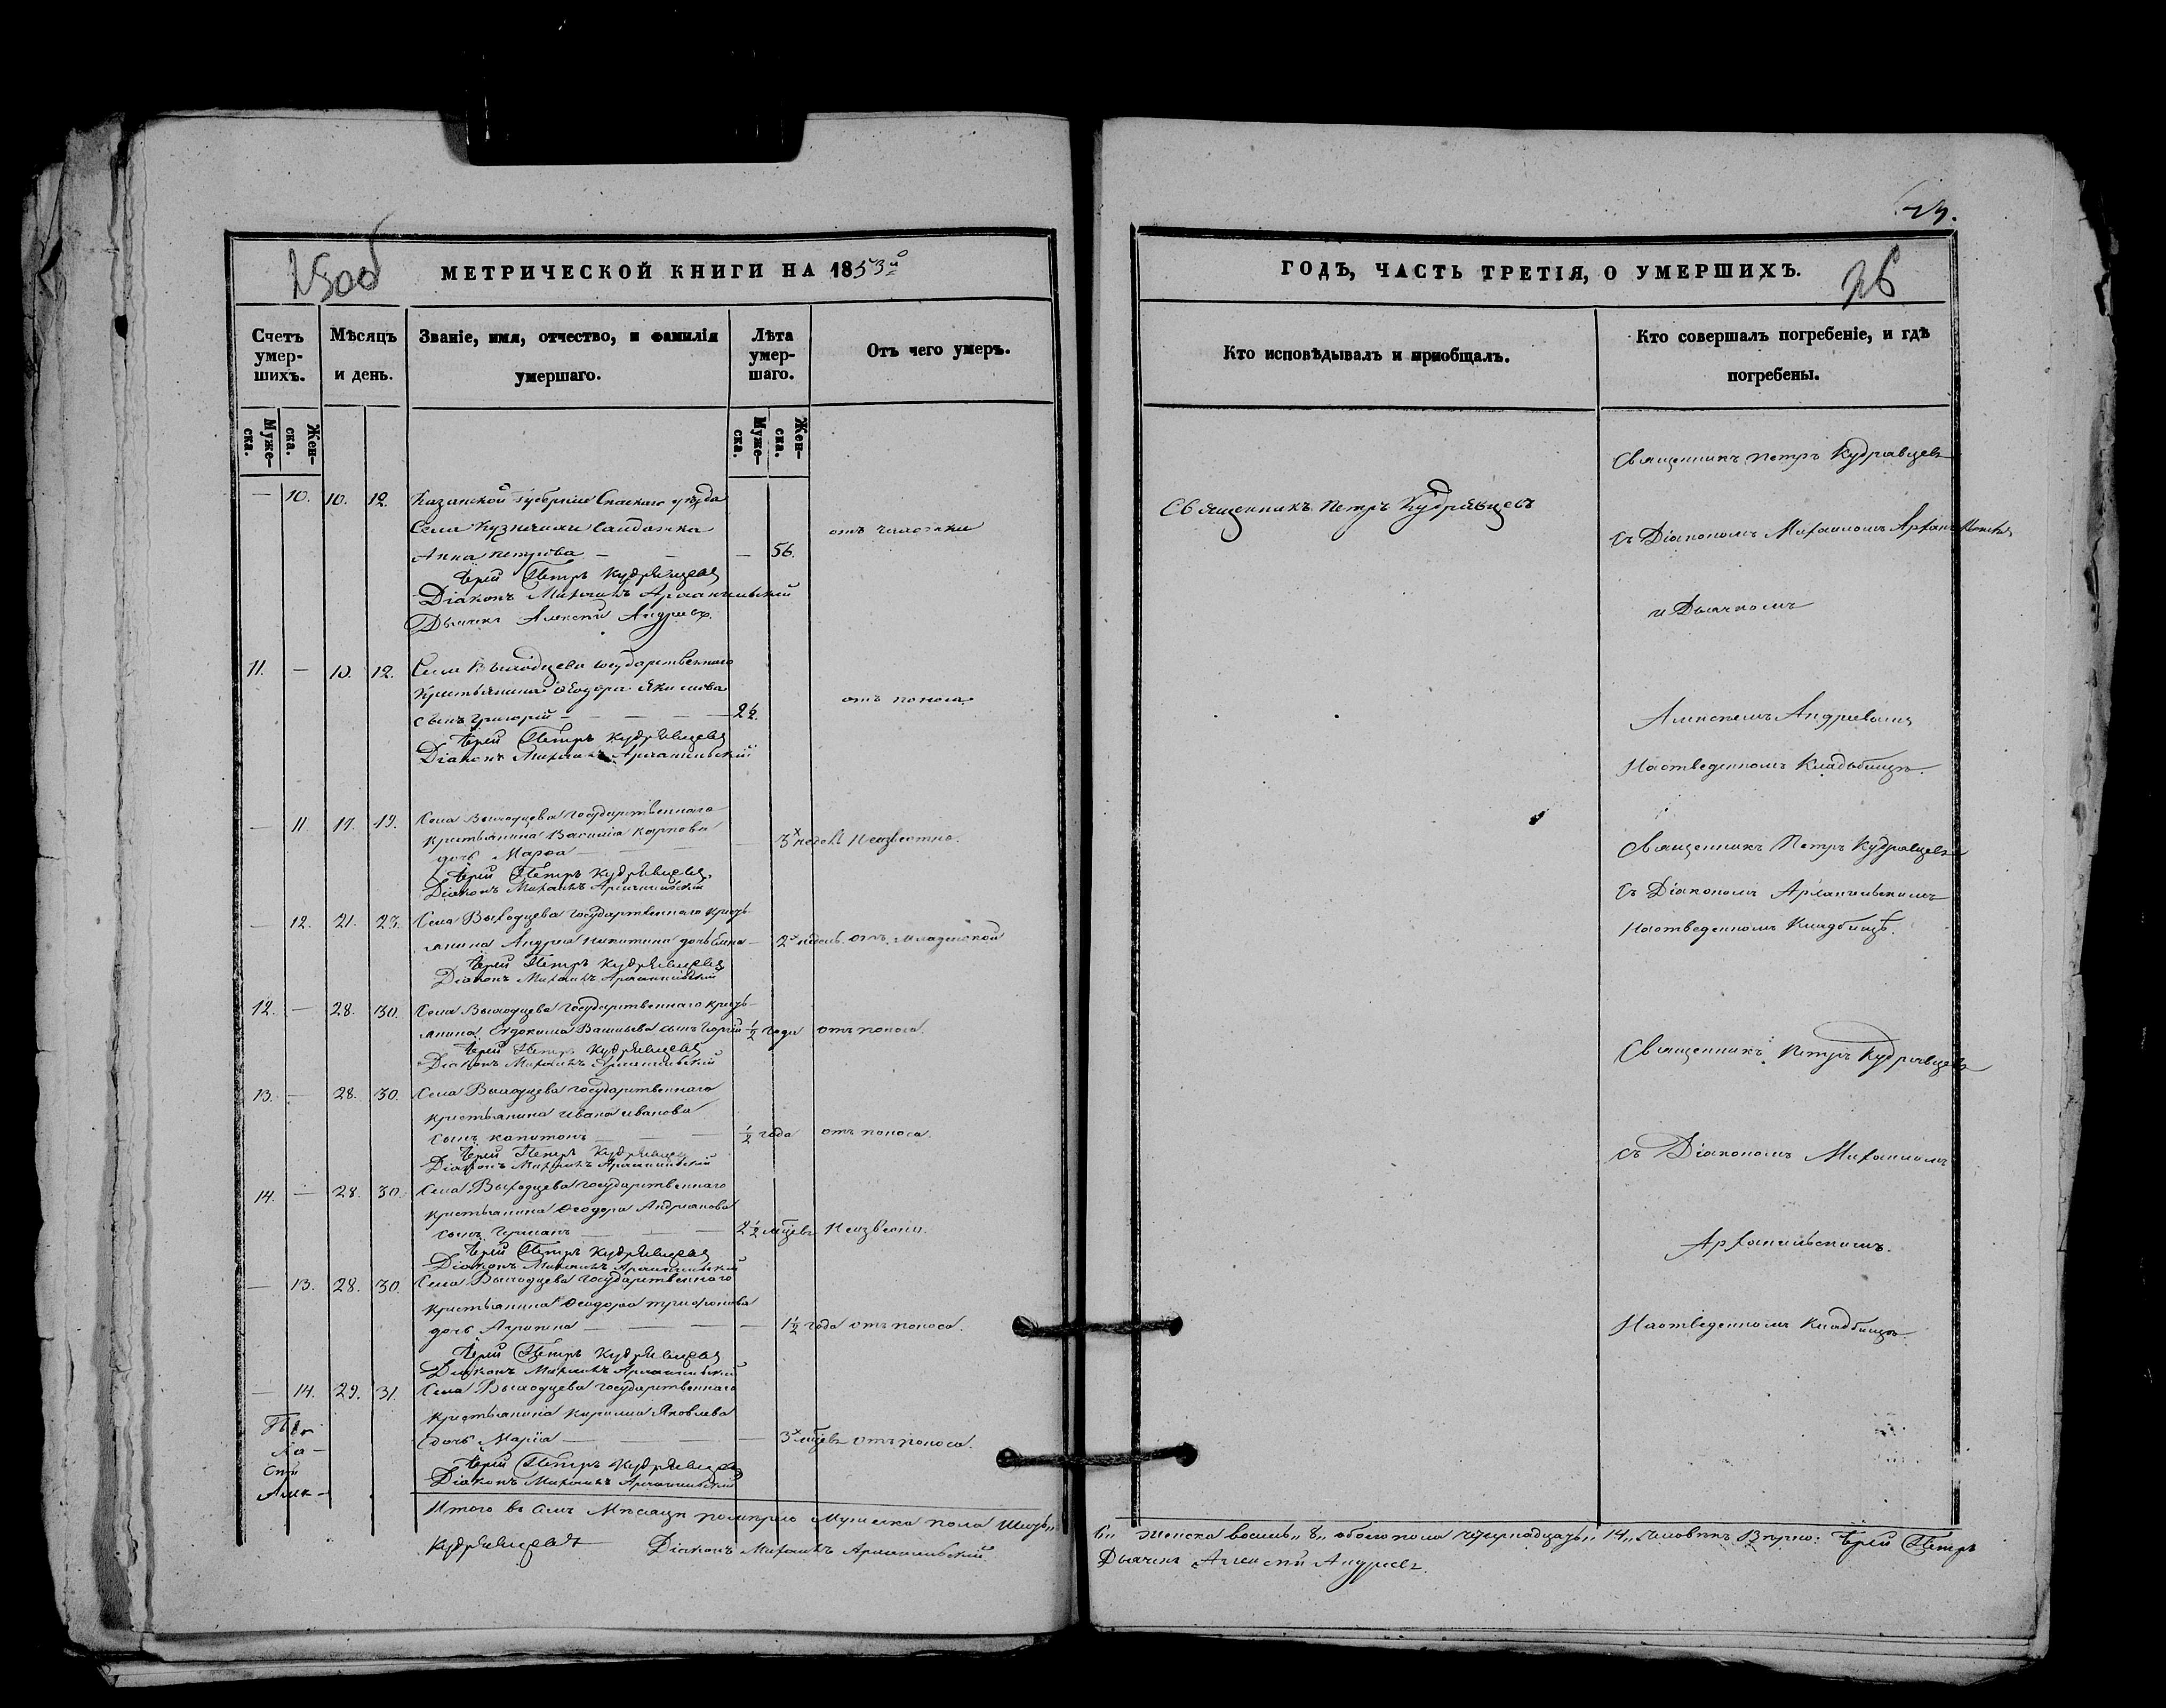 27.
25об
МЕТРИЧЕСКОЙ КНИГИ НА 1853й
ГОДЪ, ЧАСТЬ ТРЕТІЯ, О УМЕРШИХЪ.
26
Счетъ умер-
шихъ.
Мѣсяцъ
и день.
Званіе, имя, отчество, и фамилія
умершаго.
Лѣта
умер-
шаго.
Отъ чего умеръ.
Кто исповѣдывалъ и пріобщалъ.
Кто совершалъ погребеніе, и гдѣ
погребены.
Муже-
ска.
Жен-
ска.
Муже-
ска.
Жен-
ска.
— 10. 10. 12. Казанской губерніи Спаскаго уѣзда
Села Кузнечихи Солдатка
Анна Петрова — — — 56. отъ чахотки
Іерей Петръ Кудрявцевъ
Діаконъ Михаилъ Архангельскій
Дьячекъ Алексѣй Андреевъ
Священникъ Петръ Кудрявцевъ
Священникъ Петръ Кудрявцевъ
съ Діакономъ Михаиломъ Архангельскимъ
и Дьячкомъ
11. — 10. 12. Села Выходцева государственнаго
крестьянина Ѳеодора Якимова
сынъ Григорій — — — — отъ поноса
Іерей Петръ Кудрявцевъ
Діаконъ Михаилъ Архангельскій
Алексѣемъ Андреевымъ
На отведенномъ Кладбищѣ.
— 11 17. 19. Села Выходцева государственнаго
крестьянина Василія Карпова
дочь Марѳа — — — 3х недель Неизвестно.
Іерей Петръ Кудрявцевъ
Діаконъ Михаилъ Архангельскій
Священникъ Петръ Кудрявцевъ
съ Діакономъ Архангельскимъ
На отведенномъ Кладбищѣ.
— 12. 21. 23. Села Выходцева государственнаго кресть-
янина Андрея Никитина дочь — 2х недель отъ младенской
Іерей Петръ Кудрявцевъ
Діаконъ Михаилъ Архангельскій
12. — 28. 30. Села Выходцева государственнаго кресть-
янина Евдокима Васильева сынъ Георгій 1/2 года отъ поноса.
Іерей Петръ Кудрявцевъ
Діаконъ Михаилъ Архангельскій
Священникъ Петръ Кудрявцевъ
13. — 28. 30. Села Выходцева государственнаго
крестьянина Ивана Иванова
сынъ Капитонъ — — — 1/2 года отъ поноса.
Іерей Петръ Кудрявцевъ
Діаконъ Михаилъ Архангельскій
съ Діакономъ Михаиломъ
14. — 28. 30. Села Выходцева государственнаго
крестьянина Ѳеодора Андрианова
сынъ Германъ — — — 2 1/2 мѣсцевъ Неизвестно.
Іерей Петръ Кудрявцевъ
Діаконъ Михаилъ Архангельскій
Архангельскимъ.
— 13. 28. 30. Села Выходцева государственнаго
крестьянина Ѳеодора Трифонова
дочь Агрипина — — — — 1 1/2 года отъ поноса.
Іерей Петръ Кудрявцевъ
Діаконъ Михаилъ Архангельскій
На отведенномъ Кладбищѣ.
— 14. 29. 31. Села Выходцева государственнаго
крестьянина Кирилла Яковлева
дочь Марія — — — — 3х мѣцевъ отъ поноса.
Іерей Петръ Кудрявцевъ
Діаконъ Михаилъ Архангельскій
Итого въ семъ Мѣсяцѣ померло Мужеска пола Шесть„
6„ Женска восемь„ 8„ обоего пола четырнадцать„ 14„ Человѣкъ Вѣрно: Іерей Петръ
Кудрявцевъ Діаконъ Михаилъ Архангельскій
Дьячекъ Алексѣй Андреевъ.